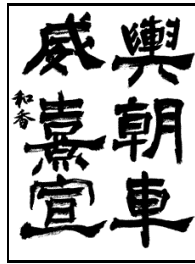 輿朝車
威熹宣
和香